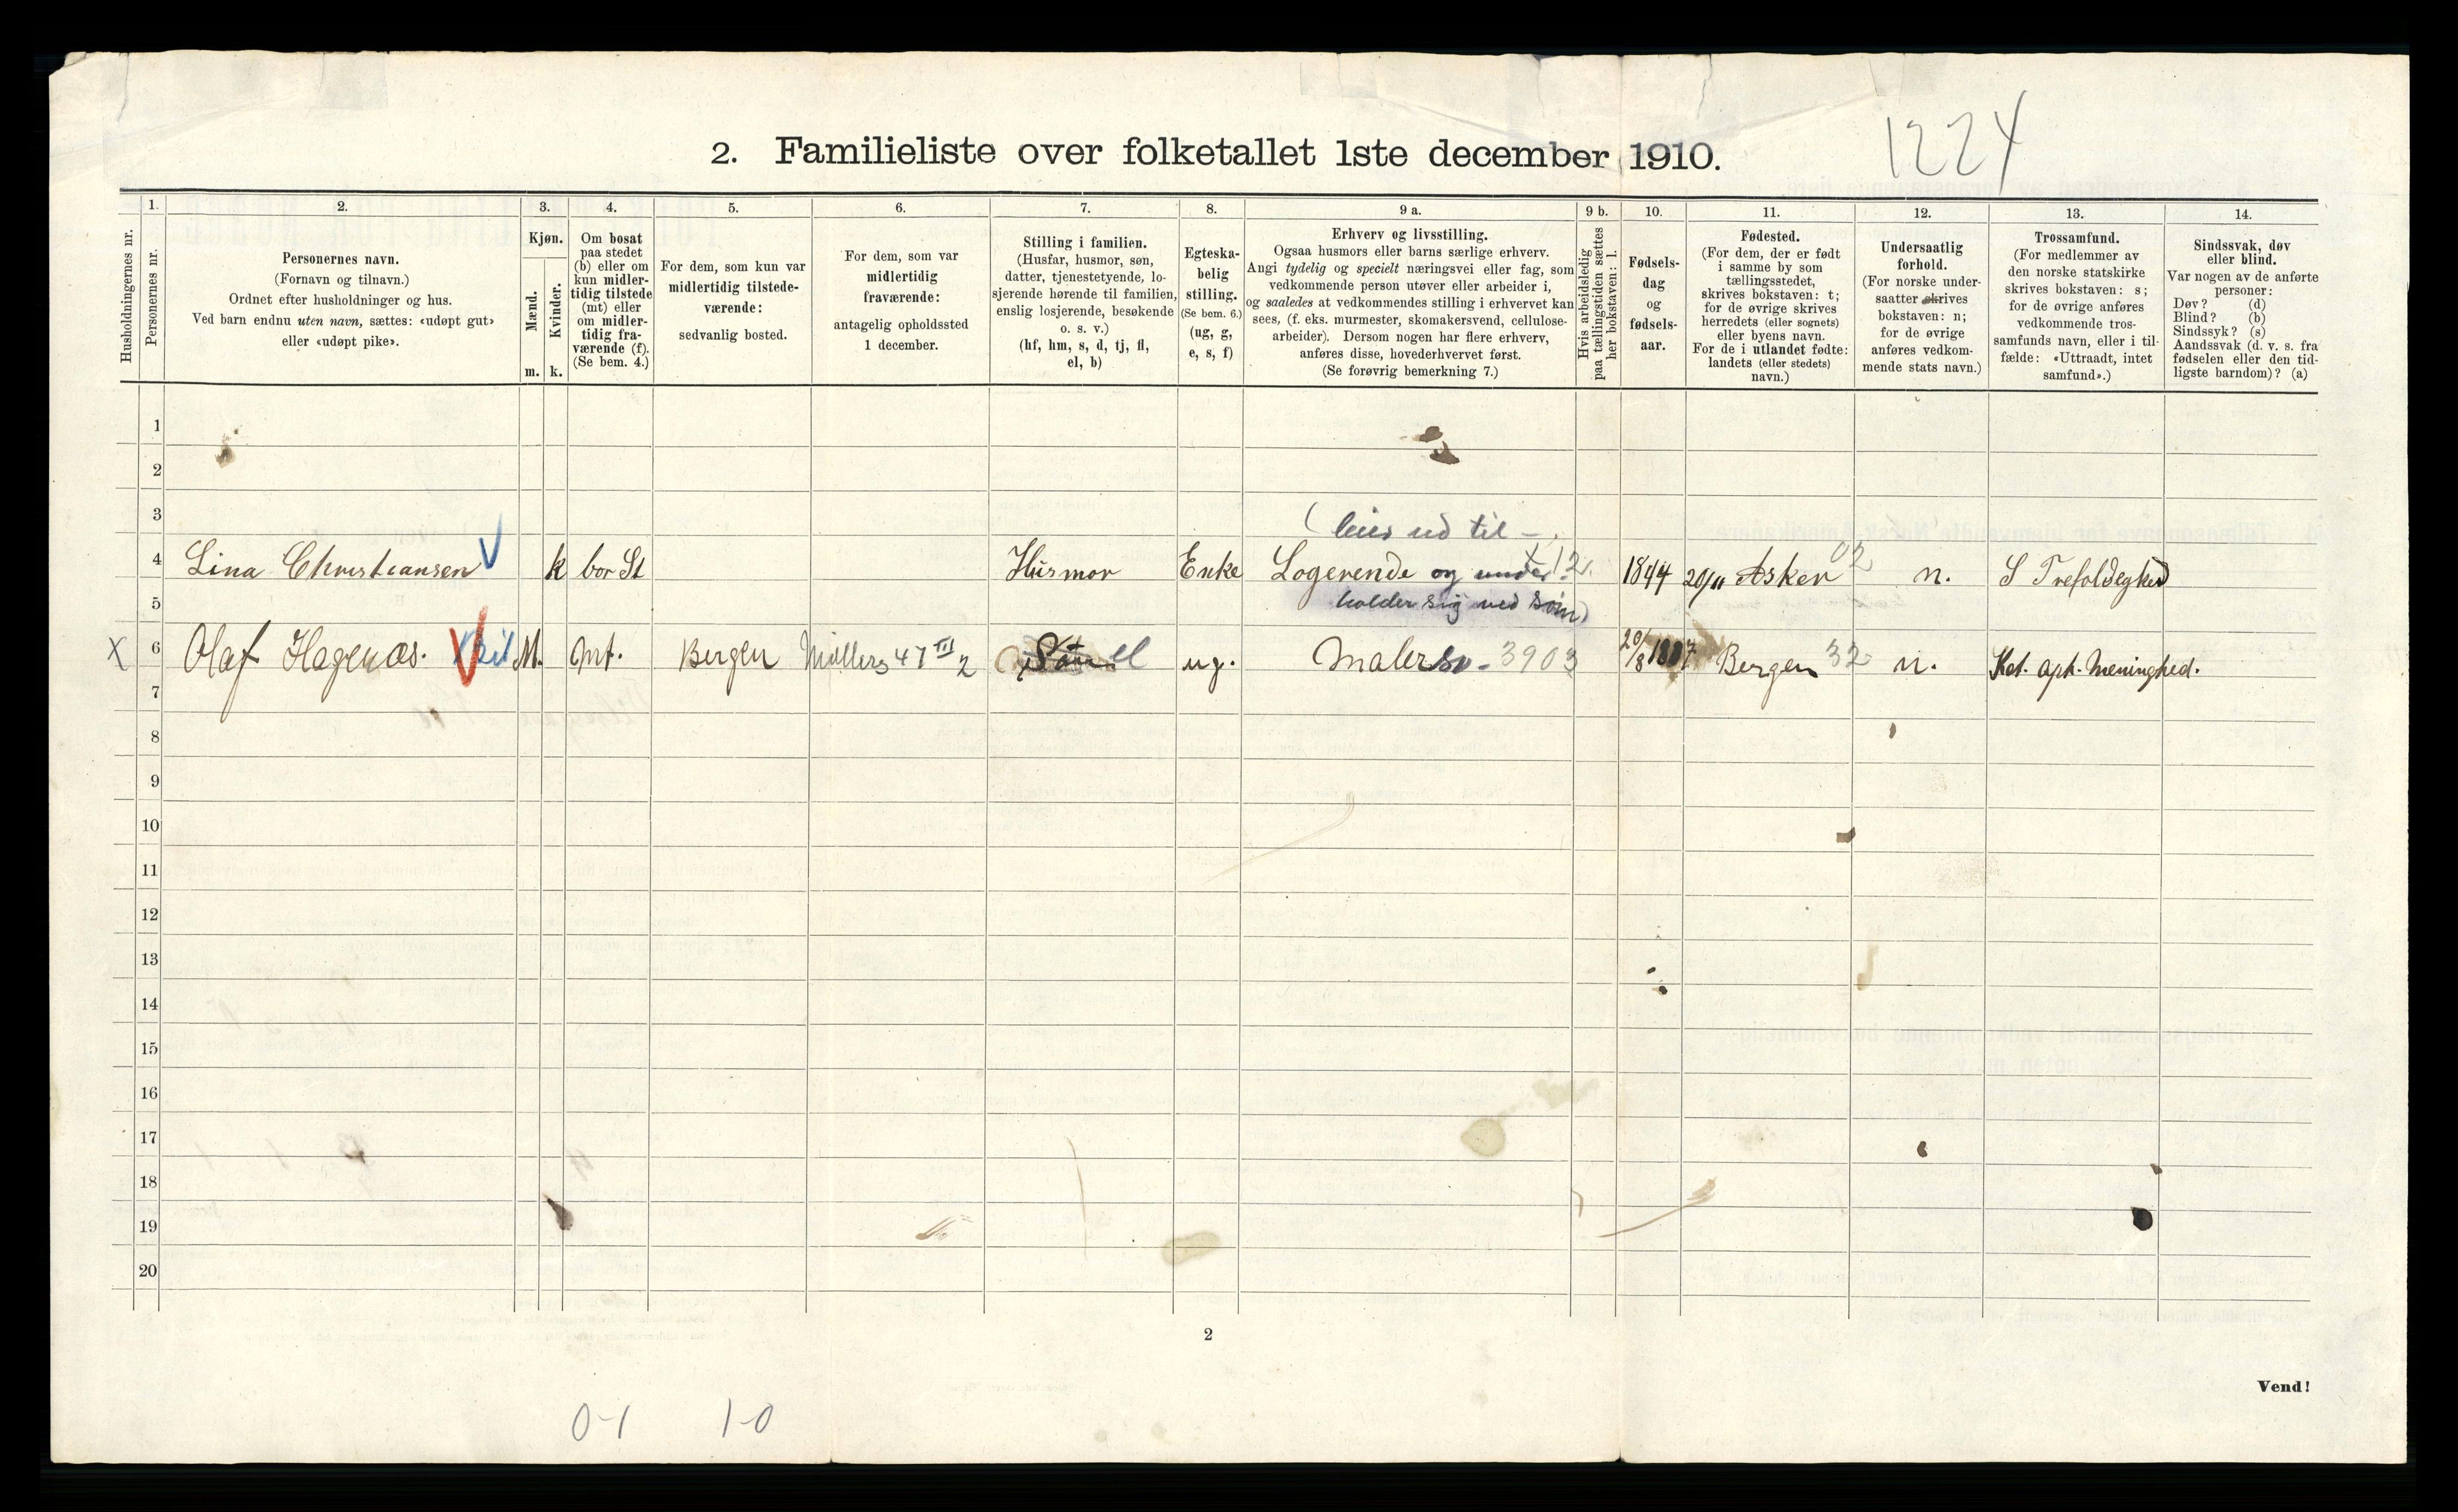 1224
2. Familieliste over folketallet 1ste december 1910.
Husholdningernes nr.
1.
Personernes nr.
2.
Personernes navn.
(Fornavn og tilnavn.)
Ordnet efter husholdninger og hus.
Ved barn endnu uten navn, sættes: «udøpt gut»
eller «udøpt pike».
3.
Kjøn.
Mænd.
Kvinder.
m. k.
4.
Om bosat
paa stedet
(b) eller om
kun midler-
tidig tilstede
(mt) eller
om midler-
tidig fra-
værende (f).
(Se bem. 4.)
5.
For dem, som kun var
midlertidig tilstede-
værende:
sedvanlig bosted.
6.
For dem, som var
midlertidig
fraværende:
antagelig opholdssted
1 december.
7.
Stilling i familien.
(Husfar, husmor, søn,
datter, tjenestetyende, lo-
sjerende hørende til familien,
enslig losjerende, besøkende
o. s. v.)
(hf, hm, s, d, tj, fl,
el, b)
8.
Egteska-
belig
stilling.
(Se bem. 6.)
(ug, g,
e, s, f)
9 a.
Erhverv og livsstilling.
Ogsaa husmors eller barns særlige erhverv.
Angi tydelig og specielt næringsvei eller fag, som
vedkommende person utøver eller arbeider i,
og saaledes at vedkommendes stilling i erhvervet kan
sees, (f. eks. murmester, skomakersvend, cellulose-
arbeider). Dersom nogen har flere erhverv,
anføres disse, hovederhvervet først.
(Se forøvrig bemerkning 7.)
9 b.
Hvis arbeidsledig
paa tællingstiden sættes
her bokstaven: l.
10.
Fødsels-
dag
og
fødsels-
aar.
11.
Fødested.
(For dem, der er født
i samme by som
tællingsstedet,
skrives bokstaven: t;
for de øvrige skrives
herredets (eller sognets)
eller byens navn.
For de i utlandet fødte:
landets (eller stedets)
navn.)
12.
Undersaatlig
forhold.
(For norske under-
saatter skrives
bokstaven: n;
for de øvrige
anføres vedkom-
mende stats navn.)
13.
Trossamfund.
(For medlemmer av
den norske statskirke
skrives bokstaven: s;
for de øvrige anføres
vedkommende tros-
samfunds navn, eller i til-
fælde: «Uttraadt, intet
samfund».)
14.
Sindssvak, døv
eller blind.
Var nogen av de anførte
personer:
Døv? (d)
Blind? (b)
Sindssyk? (s)
Aandssvak (d. v. s. fra
fødselen eller den tid-
ligste barndom)? (a)
1
2
3 (leies ud til -
4 Lina Christiansen k bor St Husmor Enke Logerende og under- x 12 1844 20/11 Asker 02 n. S Trefoldeghed
5 holder sig ved søm)
X 6 Olaf Hagenæs. M. mt. Bergen Møllerg 47 III 2 el ug. Malersv. 3903 20/8 1887 Bergen 32 n. Kat. apk. Meninghed.
7
8
9
10
11
12
13
14
15
16
17
18
19
20
2
Vend!
0-1 1-0